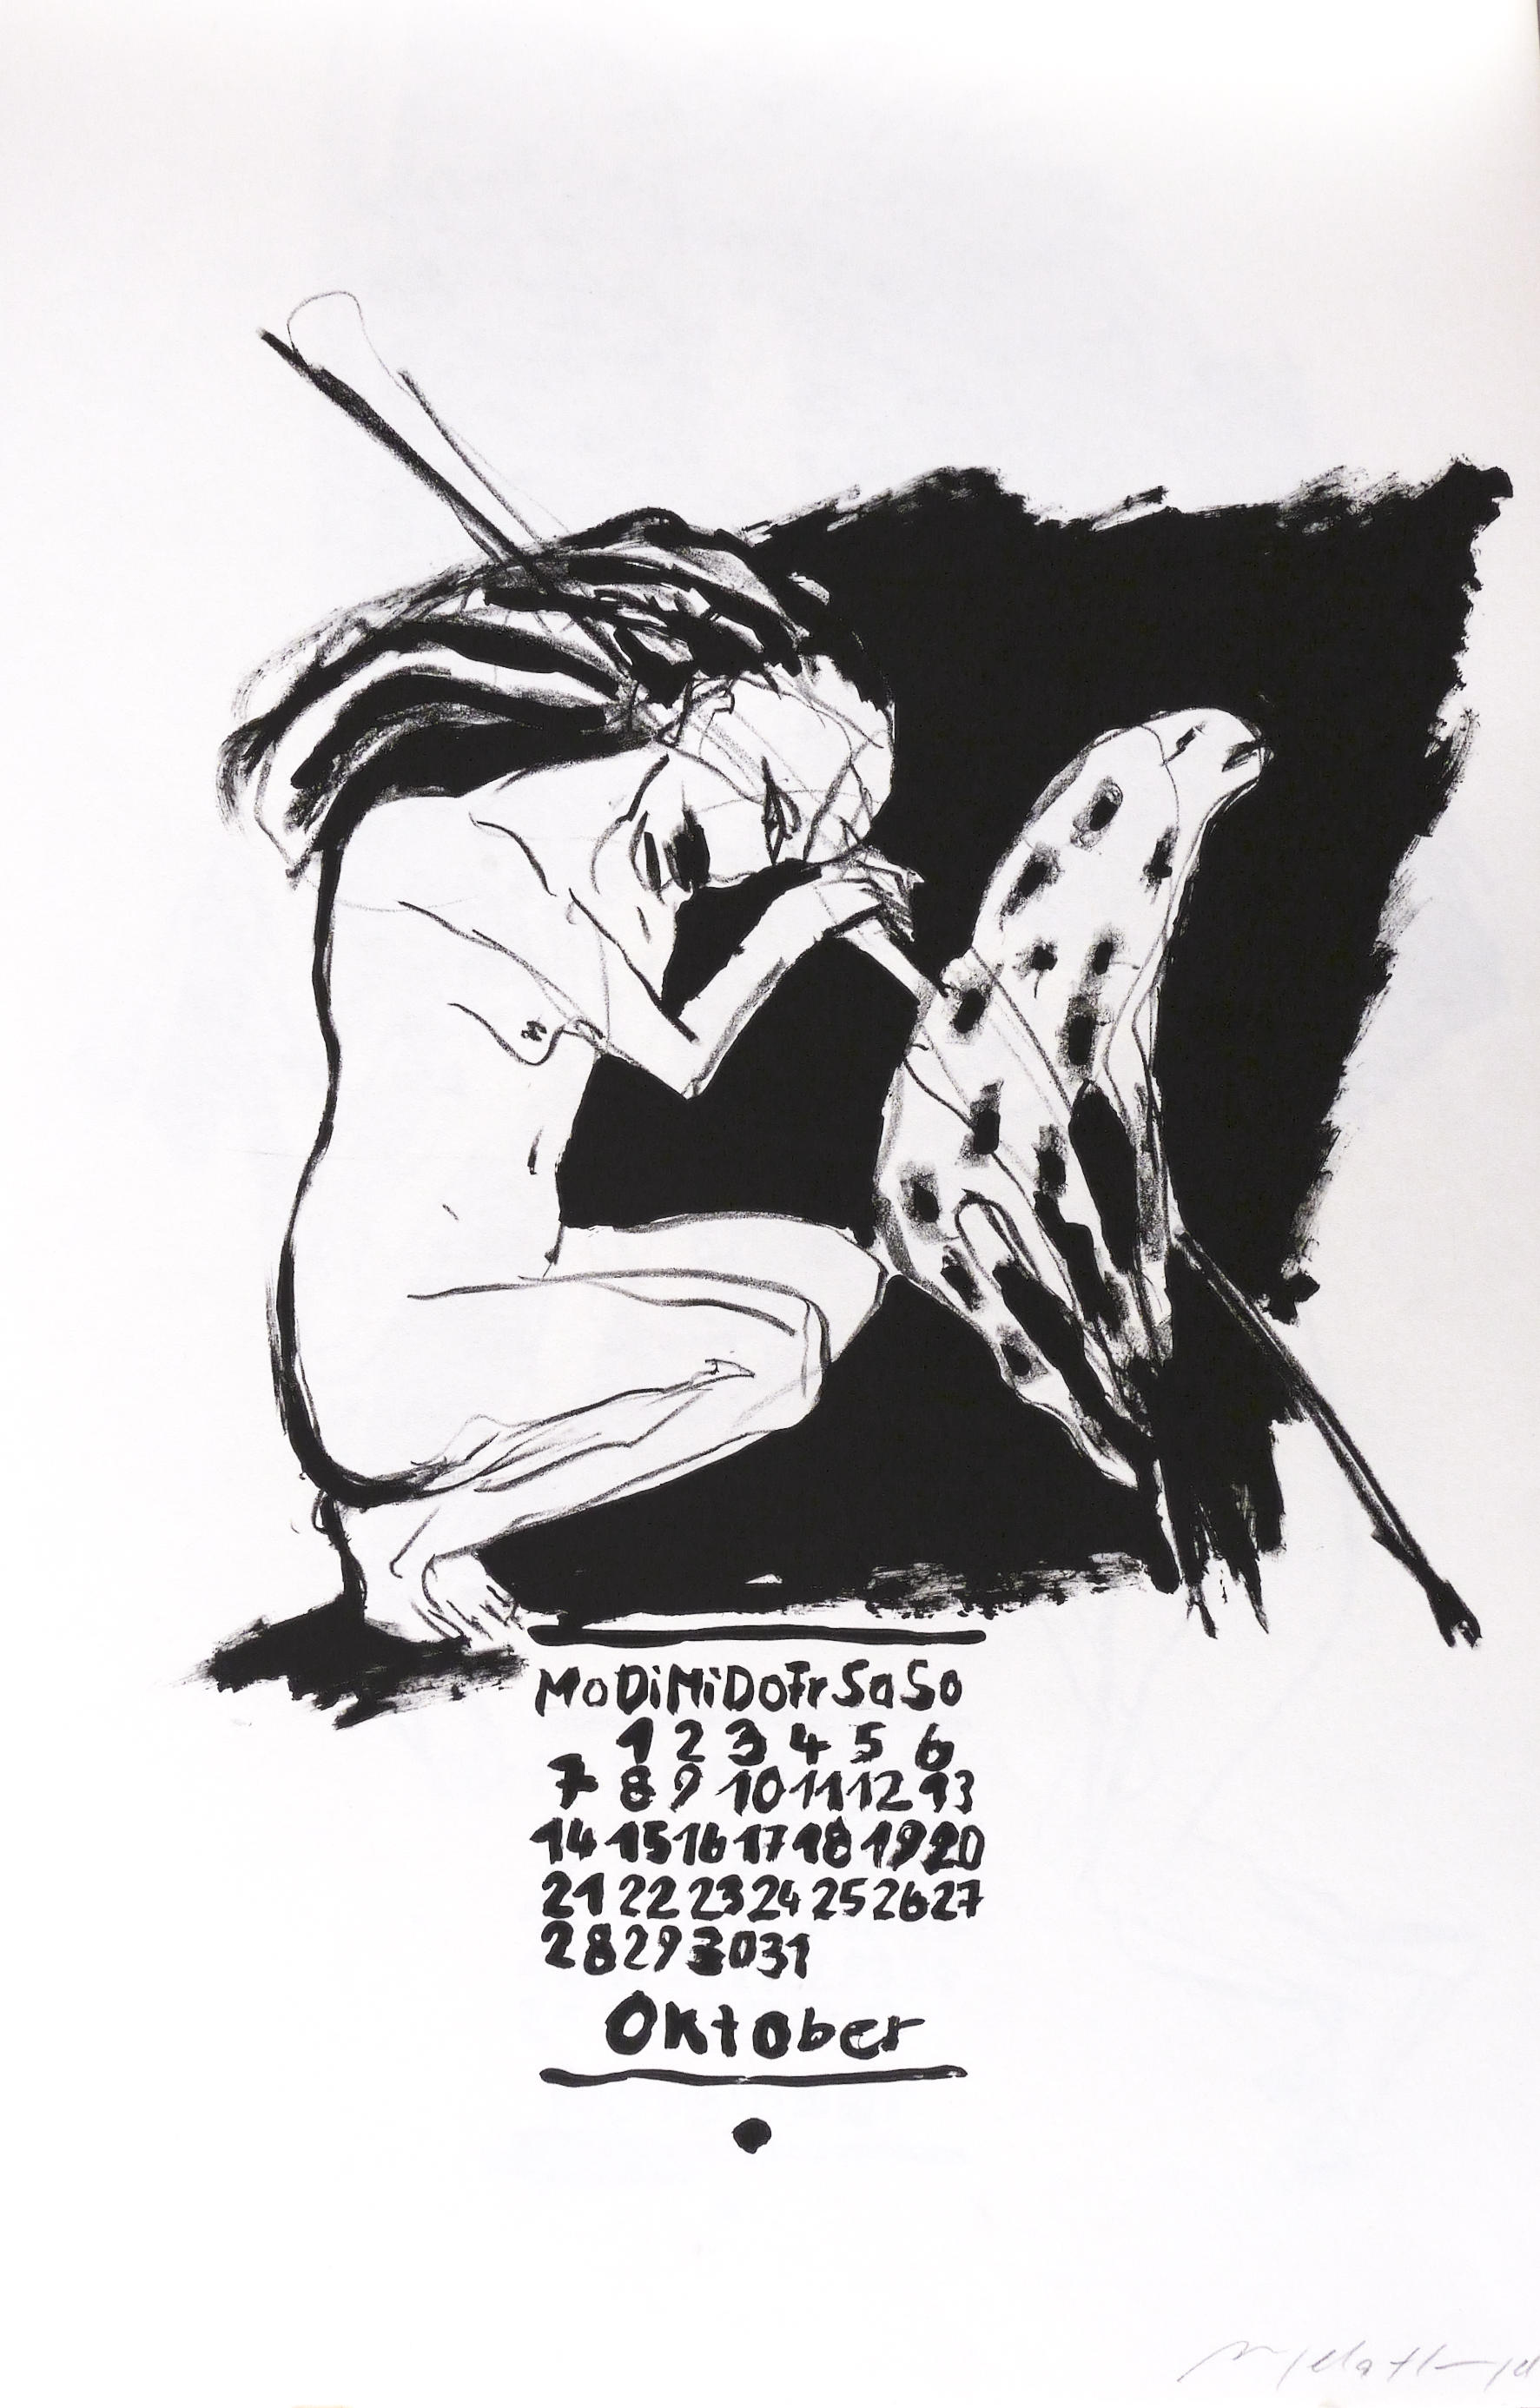 Mo Di Mi Do Fr Sa So
1 2 3 4 5 6
7 8 9 10 11 12 13
14 15 16 17 18 19 20
21 22 23 24 25 26 27
28 29 30 31
Oktober